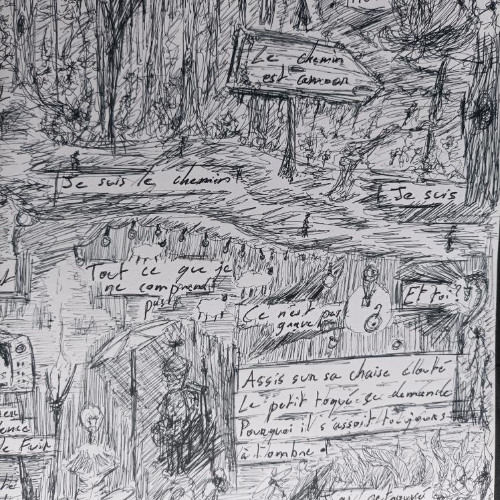 Le chemin
est amour
Je suis le chemin
Je suis
Tout ce que je
ne comprenait
pas
Et toi?
Ce n'est pas
grave
Assis sur sa chaise clouté
Le petit toqué se demande
Pourquoi il s'assoit toujours
à l'ombre